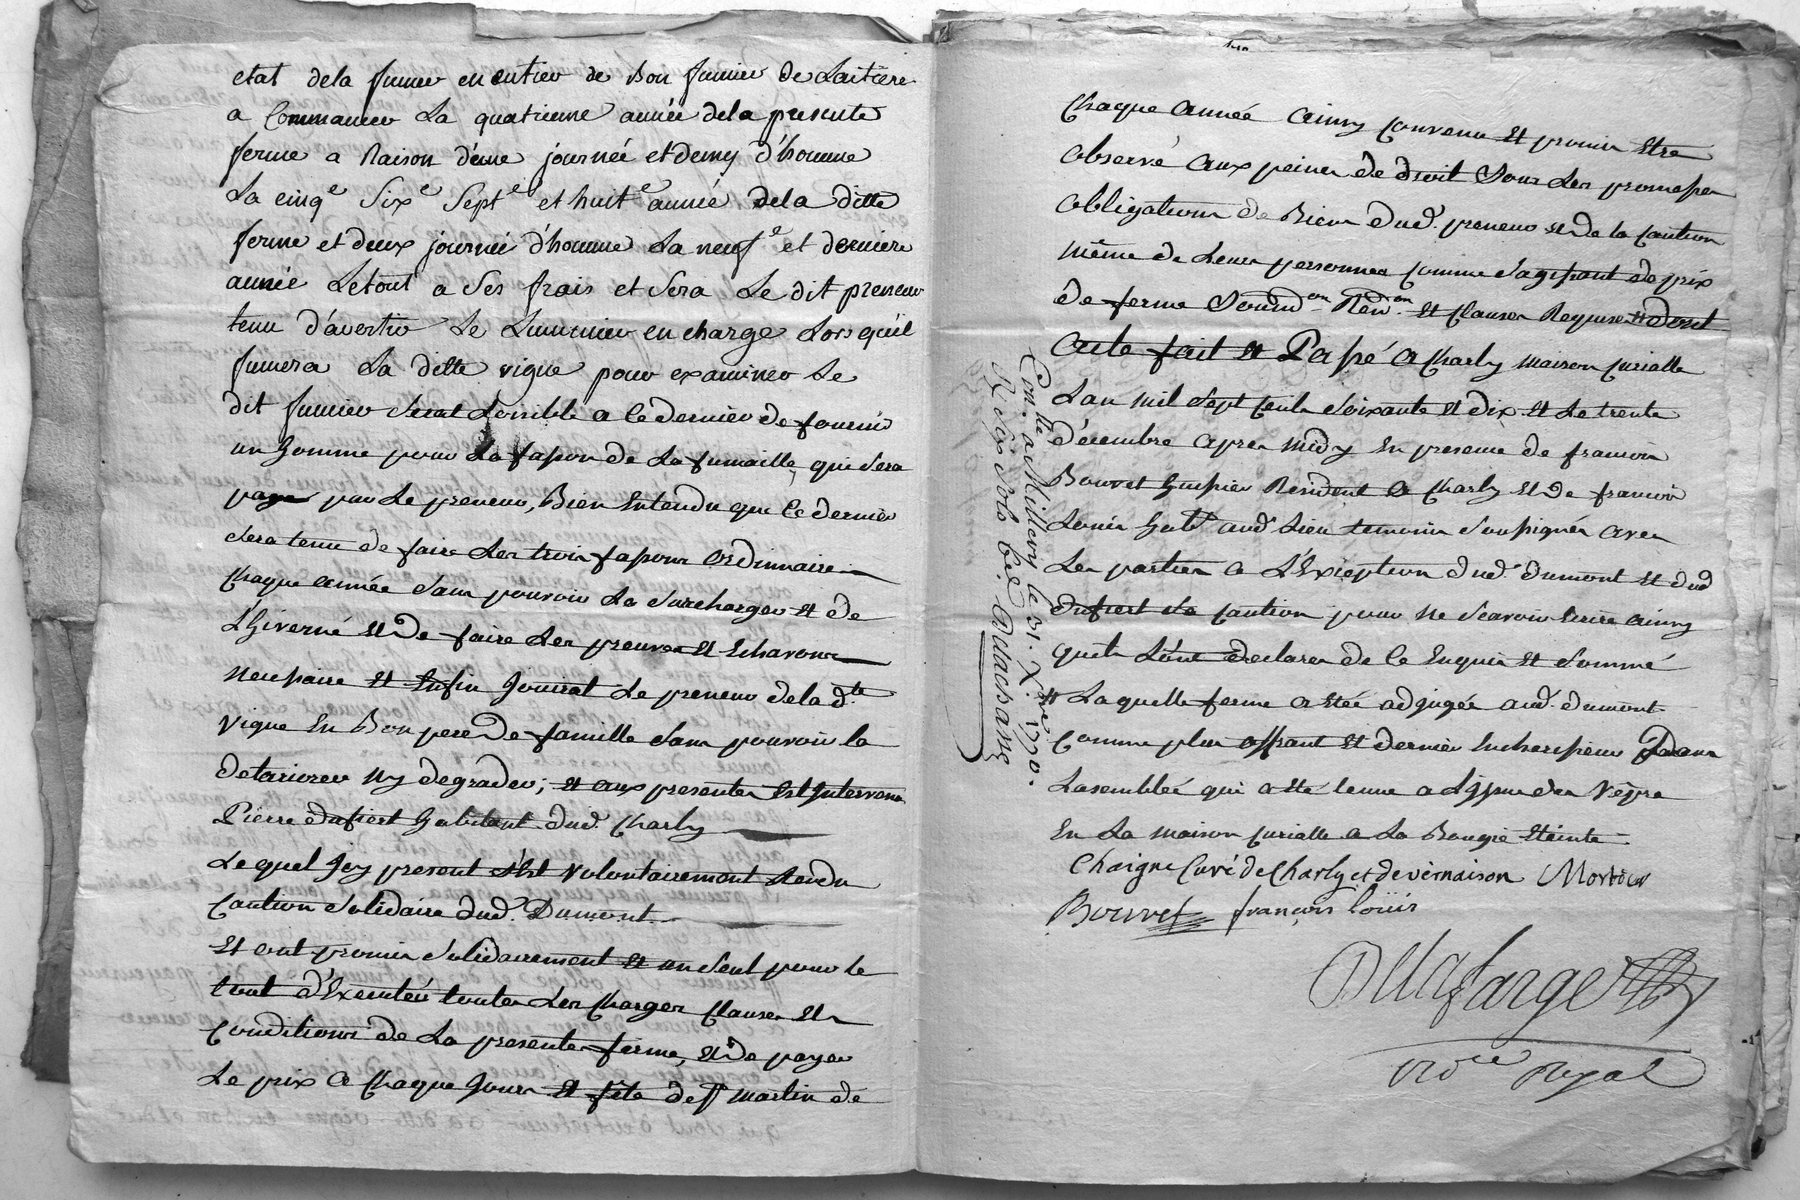 etat dela fumer en entier de Bon fumier de Laitiere
a Commancer La quatrieme année dela presente
ferme a Raison d'eune journeé et demy d'homme
La cinq.e Six.e Sept.e et huit.e année dela ditte
ferme et deux journeé d'homme La neuf.e et derniere
année Letout a Ses frais et Sera Le dit preneur
tenu d'avertir Le Luminier en charge Lors qu'il
fumera La ditte vigne pour examiner Le
dit fumier Serat Loisible a Ce dernier de fournir
un homme pour La façon de La fumaille, qui Sera
payé par Le preneur, Bien Entendu que Ce dernier
Sera tenu de faire Les trois façons Ordinnaire
Chaque année Sans pouvoir La Surcharger et de
L'hiverné et De faire Les preuves et Echavons
Necessaire et Enfin Jouirat Le preneur dela d.te
Vigne En Bon pere De famille Sans pouvoir la
detariorer Ny degrader; et aux presentes Est Intervenu
Pierre Dufiert habitant dud. Charly
Le quel Icy present s'Est Volontairement Rendu
Caution Solidaire dud. Dumont
Et ont promis Solidairement et un Seul pour le
tout d'Executer toutes Les Charges Clauses Et
Conditions de La presente ferme, et De payer
Le prix a Chaque Jour et fête de St martin de
Chaque année Ainsy Convenu et promis Etre
Observé aux peines de droit Sous Les promesses
Obligations de Biens dud. preneur et de la Caution
même de Leurs personnes Comme S'agissant de prix
de ferme Soum.on Ren.on et Clauses Requises Dont
Acte fait et Passé a Charly maison Curialle
L'an mil Sept Cents Soixante et dix et Le trente
décembre apres midy En presence de francois
Bouvet Resident a Charly et de francois
Louis hab.t aud. Lieu temoins Soussignes avec
Les parties a L'Exception dud. Dumont et dud.
Dufiert Sa Caution pour ne Scavoir Ecrire Ainsy
quils L'ont declarer de Ce Enquis et Sommé
Laquelle ferme a Eté adjugée aud. Dumont
Comme plus offrant et dernier Encherisseur Dans
Lasemblée qui a Eté tenue a L'issue des Vêpre
En La maison Curialle a La Bougie Eteinte
Chaigne Curé de Charly et de vernaison Mortier
Bouvet françois louis
Dellafarge
No.re Royal
Con.llé a Millery le 31. X.bre 1770.
R. Six Sols
Delachsaine